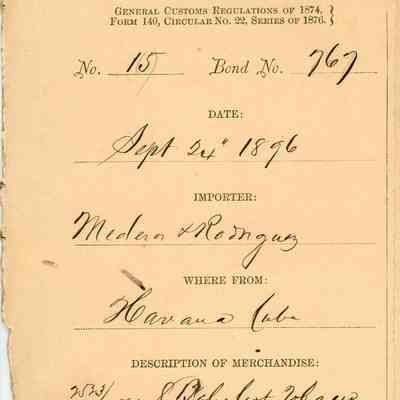 GENERAL CUSTOMS REGULATIONS OF 1874.
FORM 140, CIRCULAR NO. 22, SERIES OF 1876.
No. 15 Bond No. 767
DATE:
Sept 24" 1896
IMPORTER:
Medero & Rodriguez
WHERE FROM:
Havana Cuba
DESCRIPTION OF MERCHANDISE:
8 Bales Tobacco